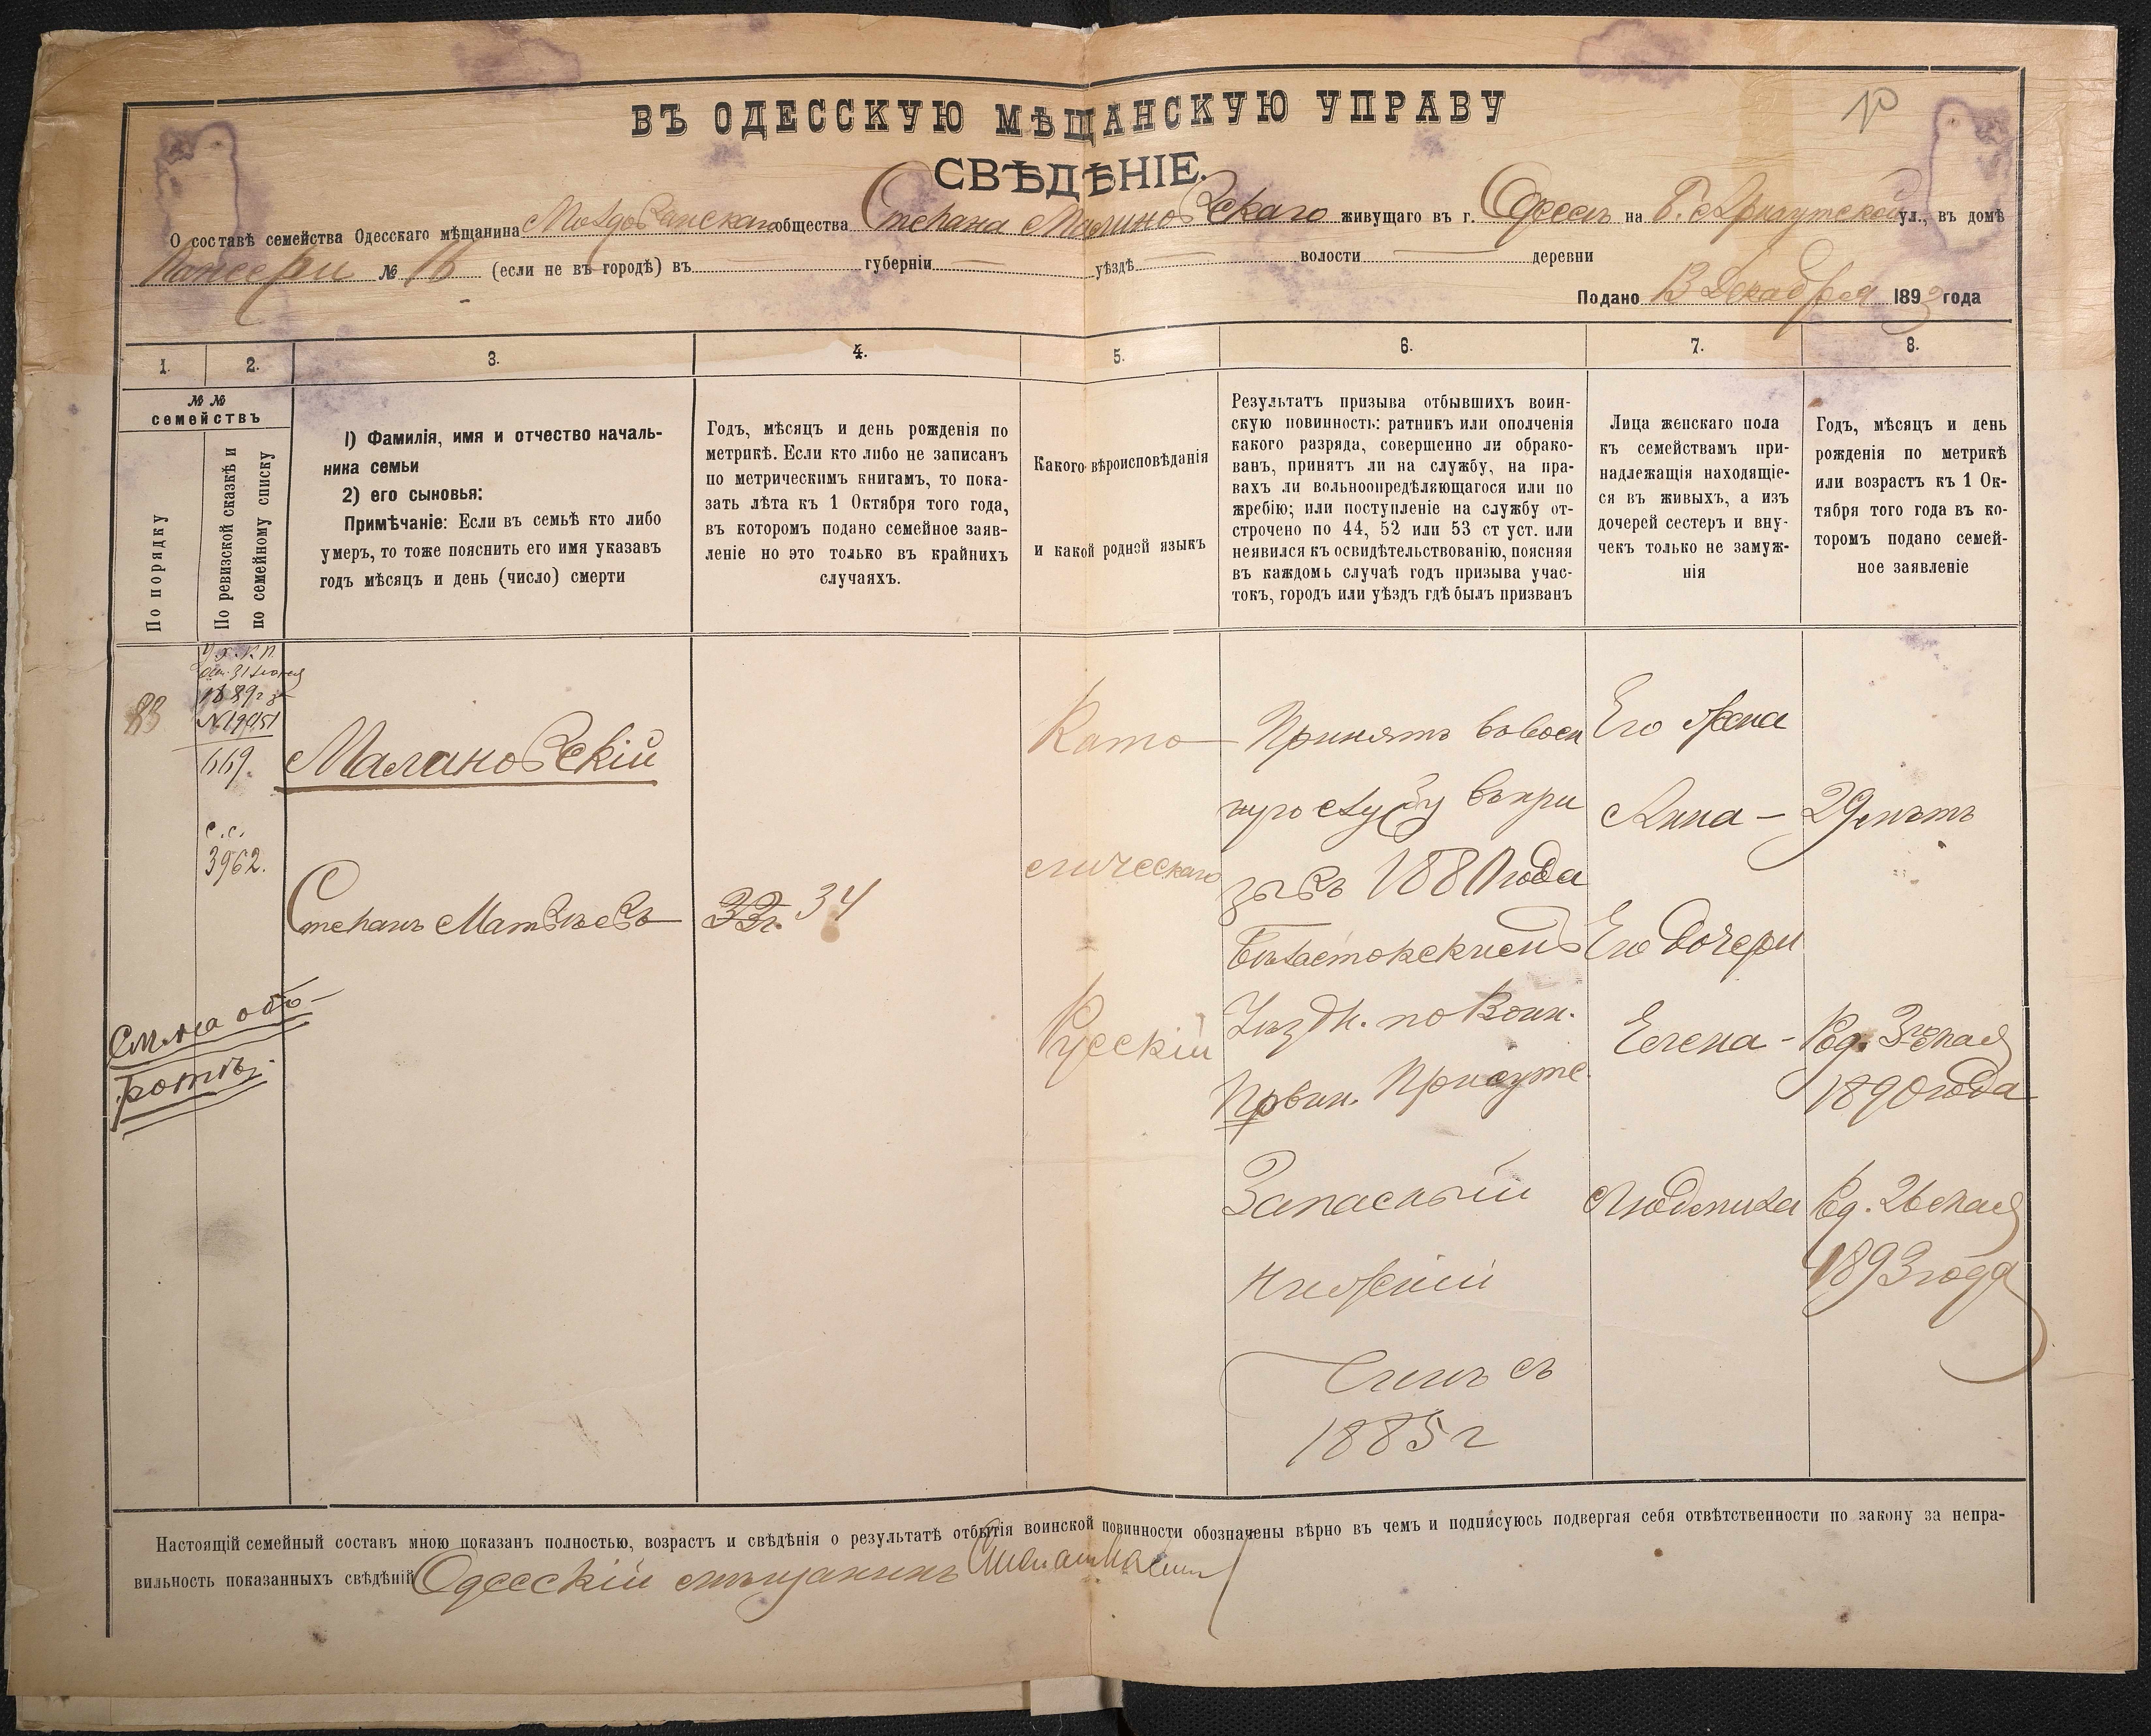 ВЪ ОДЕССКУЮ МѢЩАНСКУЮ УПРАВУ
СВѢДѢНІЕ.
О составѣ семейства Одесскаго мѣщанина Молдованскаго общества Степана Малиновскаго живущаго въ г. Одессѣ на Б. Арнаутской ул., въ домѣ
№ (если не въ городѣ) въ губерніи уѣздѣ волости деревни
Подано 13 Декабря 1893 года
1. 2. 3. 4. 5. 6. 7. 8.
№№ семействъ
По порядку
По ревизской сказкѣ и
по семейному списку
1) Фамилія, имя и отчество началь-
ника семьи
2) его сыновья:
Примѣчаніе: Если въ семьѣ кто либо
умеръ, то тоже пояснить его имя указавъ
годъ мѣсяцъ и день (число) смерти
Годъ, мѣсяцъ и день рожденія по
метрикѣ. Если кто либо не записанъ
по метрическимъ книгамъ, то пока-
зать лѣта къ 1 Октября того года,
въ которомъ подано семейное заяв-
леніе но это только въ крайнихъ
случаяхъ.
Какого вѣроисповѣданія
и какой родной языкъ
Результатъ призыва отбывшихъ воин-
скую повинность: ратникъ или ополченія
какого разряда, совершенно ли обрако-
ванъ, принятъ ли на службу, на пра-
вахъ ли вольноопредѣляющагося или по
жребію; или поступленіе на службу от-
строчено по 44, 52 или 53 ст уст. или
неявился къ освидѣтельствованію, поясняя
въ каждомъ случаѣ годъ призыва учас-
токъ, городъ или уѣздъ гдѣ былъ призванъ
Лица женскаго пола
къ семействамъ при-
надлежащія находящіе-
ся въ живыхъ, а изъ
дочерей сестеръ и вну-
чекъ только не замуж-
нія
Годъ, мѣсяцъ и день
рожденія по метрикѣ
или возрастъ къ 1 Ок-
тября того года въ ко-
торомъ подано семей-
ное заявленіе
У.Х.К.П.
1889г за
№19951
83
669.
С.С.
3962.
См. на обо-
ротѣ.
Малановскій
Степанъ Матвѣевъ
33г. 34
Като-
лическаго
Русскій
Принятъ въ воен
ную службу въ при
зывъ 1880 года
Бѣлостокскимъ
Уѣздн. по Воин.
Повин. Присутс.
Запасный
нижній
Чинъ съ
1885 г
Его жена
Анна - 29 лѣтъ
Его дочери
Елена - Род. 3го мая
1890 года
Людмила Род. 26 мая
1893 года
Настоящій семейный составъ мною показанъ полностью, возрастъ и свѣдѣнія о результатѣ отбытія воинской повинности обозначены вѣрно въ чемъ и подписуюсь подвергая себя отвѣтственности по закону за непра-
вильность показанныхъ свѣдѣній Одесскій мѣщанинъ